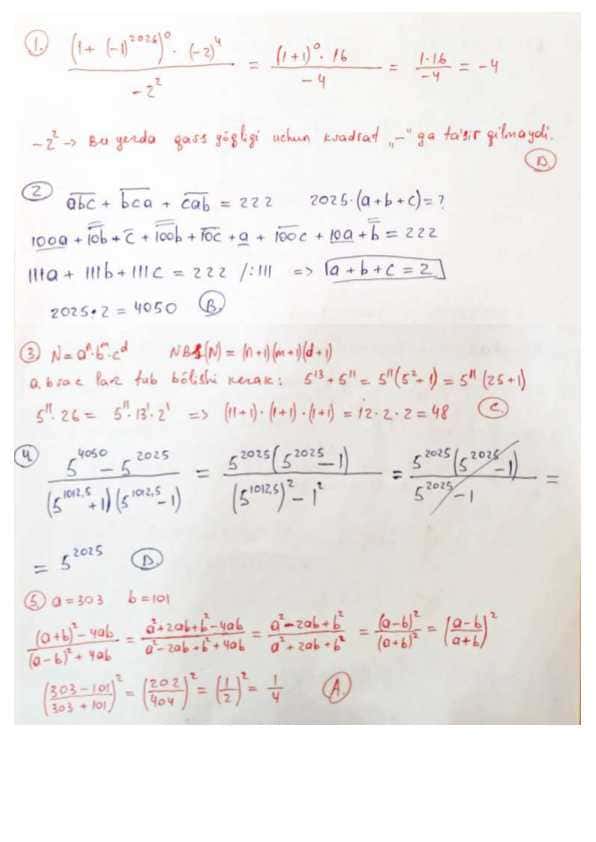 1. (1 + (-1)^2026)^0 · (-2)^4 / -2^2 = (1+1)^0 · 16 / -4 = 1·16 / -4 = -4
-2^2 → Bu yerda qavs yo'qligi uchun kvadrat „-" ga ta'sir qilmaydi.
D.
2 abc + bca + cab = 222 2025·(a+b+c)=?
100a + 10b + c + 100b + 10c + a + 100c + 10a + b = 222
111a + 111b + 111c = 222 /:111 => a+b+c=2
2025·2 = 4050 B.
3 N = a^n · b^m · c^d NBS(N) = (n+1)(m+1)(d+1)
a, b va c lar tub bo'lishi kerak: 5^13 + 5^11 = 5^11(5^2+1) = 5^11(25+1)
5^11 · 26 = 5^11 · 13^1 · 2^1 => (11+1)·(1+1)·(1+1) = 12·2·2 = 48 C.
4 5^4050 - 5^2025 / (5^1012,5 + 1)(5^1012,5 - 1) = 5^2025(5^2025 - 1) / (5^1012,5)^2 - 1^2 = 5^2025(5^2025 - 1) / 5^2025 - 1 =
= 5^2025 D.
5. a = 303 b = 101
(a+b)^2 - 4ab / (a-b)^2 + 4ab = a^2+2ab+b^2-4ab / a^2-2ab+b^2+4ab = a^2-2ab+b^2 / a^2+2ab+b^2 = (a-b)^2 / (a+b)^2 = (a-b / a+b)^2
(303-101 / 303+101)^2 = (202 / 404)^2 = (1/2)^2 = 1/4 A.